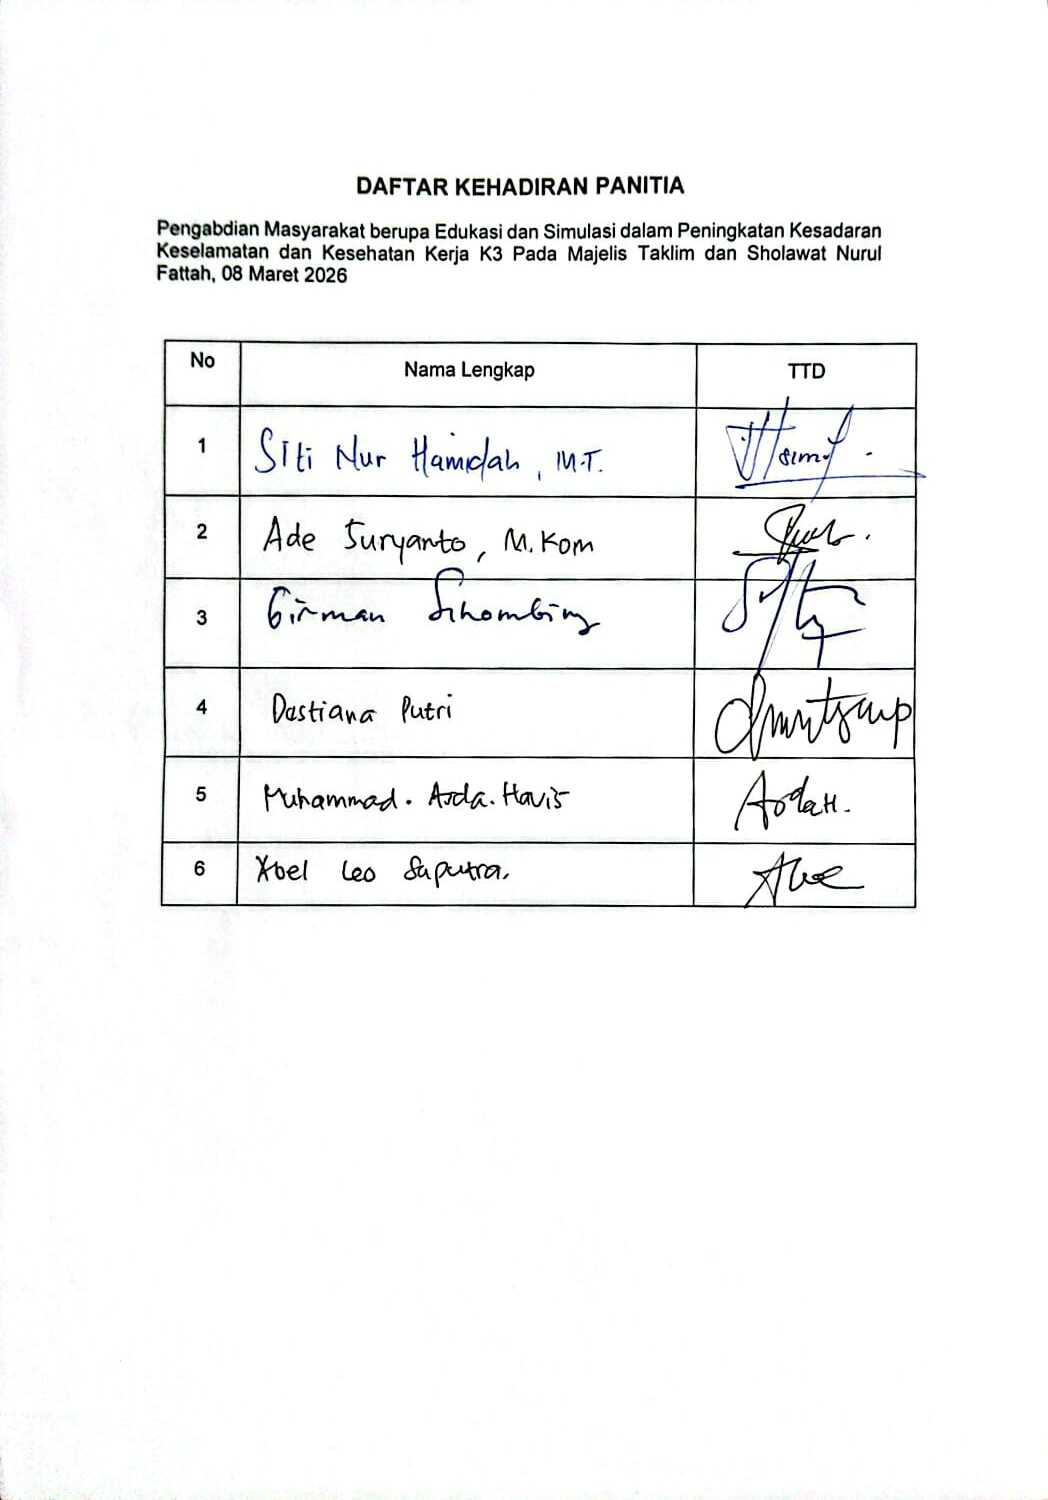 DAFTAR KEHADIRAN PANITIA
Pengabdian Masyarakat berupa Edukasi dan Simulasi dalam Peningkatan Kesadaran
Keselamatan dan Kesehatan Kerja K3 Pada Majelis Taklim dan Sholawat Nurul
Fattah, 08 Maret 2026
No Nama Lengkap TTD
1 Siti Nur Hamidah, M.T.
2 Ade Suryanto, M.Kom
3 Girman Sihombing
4 Dastiana Putri
5 Muhammad. Arda. Havis Ardah.
6 Abel Leo Saputra.